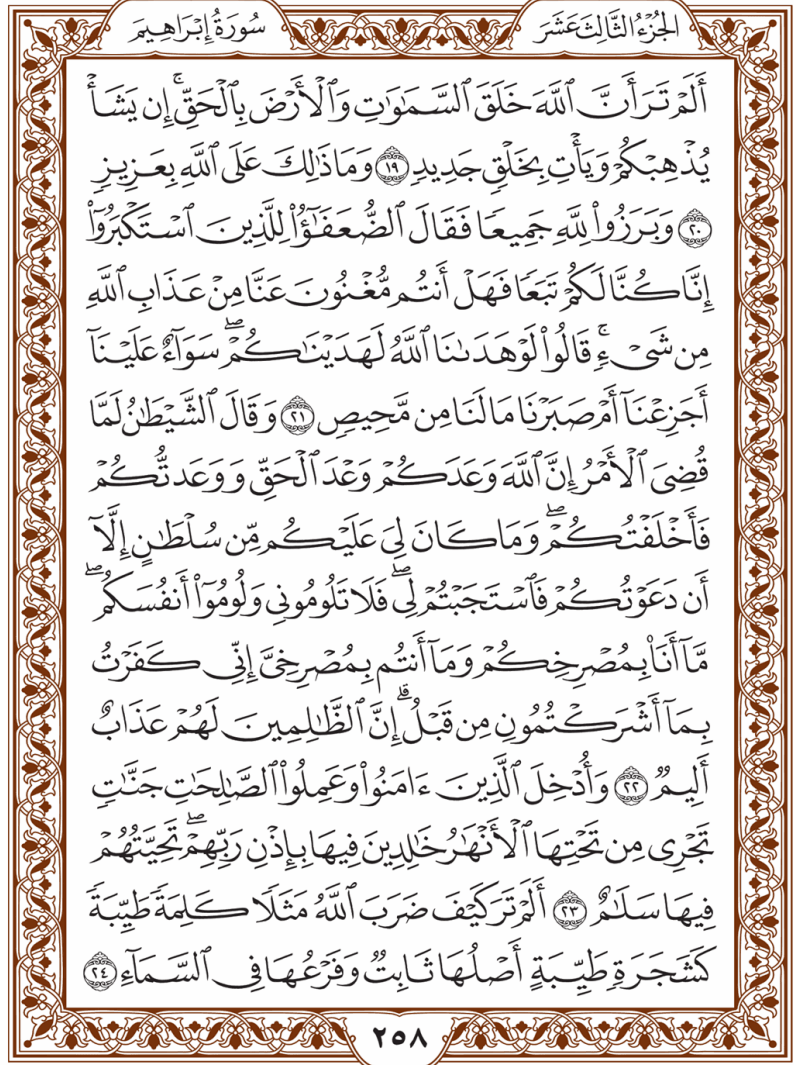 الجُزْءُ الثَّالِثَ عَشَرَ
سُورَةُ إِبْرَاهِيمَ
أَلَمْ تَرَ أَنَّ ٱللَّهَ خَلَقَ ٱلسَّمَٰوَٰتِ وَٱلْأَرْضَ بِٱلْحَقِّۚ إِن يَشَأْ
يُذْهِبْكُمْ وَيَأْتِ بِخَلْقٍ جَدِيدٍ ١٩ وَمَا ذَٰلِكَ عَلَى ٱللَّهِ بِعَزِيزٍ
٢٠ وَبَرَزُوا۟ لِلَّهِ جَمِيعًا فَقَالَ ٱلضُّعَفَٰٓؤُا۟ لِلَّذِينَ ٱسْتَكْبَرُوٓا۟
إِنَّا كُنَّا لَكُمْ تَبَعًا فَهَلْ أَنتُم مُّغْنُونَ عَنَّا مِنْ عَذَابِ ٱللَّهِ
مِن شَىْءٍۚ قَالُوا۟ لَوْ هَدَىٰنَا ٱللَّهُ لَهَدَيْنَٰكُمْۖ سَوَآءٌ عَلَيْنَآ
أَجَزِعْنَآ أَمْ صَبَرْنَا مَا لَنَا مِن مَّحِيصٍ ٢١ وَقَالَ ٱلشَّيْطَٰنُ لَمَّا
قُضِىَ ٱلْأَمْرُ إِنَّ ٱللَّهَ وَعَدَكُمْ وَعْدَ ٱلْحَقِّ وَوَعَدتُّكُمْ
فَأَخْلَفْتُكُمْۖ وَمَا كَانَ لِىَ عَلَيْكُم مِّن سُلْطَٰنٍ إِلَّآ
أَن دَعَوْتُكُمْ فَٱسْتَجَبْتُمْ لِىۖ فَلَا تَلُومُونِى وَلُومُوٓا۟ أَنفُسَكُمۖ
مَّآ أَنَا۠ بِمُصْرِخِكُمْ وَمَآ أَنتُم بِمُصْرِخِىَّ إِنِّى كَفَرْتُ
بِمَآ أَشْرَكْتُمُونِ مِن قَبْلُۗ إِنَّ ٱلظَّٰلِمِينَ لَهُمْ عَذَابٌ
أَلِيمٌ ٢٢ وَأُدْخِلَ ٱلَّذِينَ ءَامَنُوا۟ وَعَمِلُوا۟ ٱلصَّٰلِحَٰتِ جَنَّٰتٍ
تَجْرِى مِن تَحْتِهَا ٱلْأَنْهَٰرُ خَٰلِدِينَ فِيهَا بِإِذْنِ رَبِّهِمْۖ تَحِيَّتُهُمْ
فِيهَا سَلَٰمٌ ٢٣ أَلَمْ تَرَ كَيْفَ ضَرَبَ ٱللَّهُ مَثَلًا كَلِمَةً طَيِّبَةً
كَشَجَرَةٍ طَيِّبَةٍ أَصْلُهَا ثَابِتٌ وَفَرْعُهَا فِى ٱلسَّمَآءِ ٢٤
٢٥٨